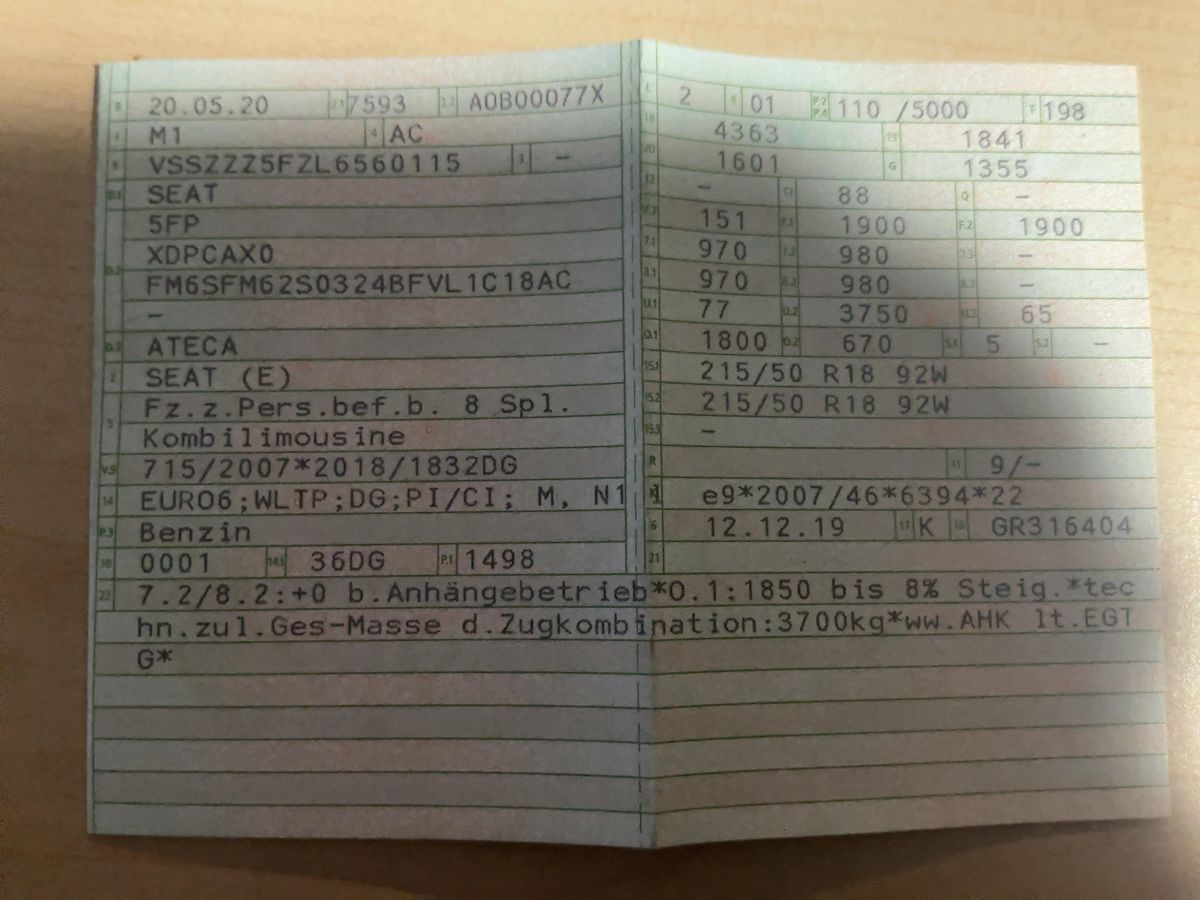 B 20.05.20 2.1 7593 2.2 A0B00077X
J M1 4 AC
E VSSZZZ5FZL6560115 3 –
D.1 SEAT
5FP
D.2 XDPCAX0
FM6SFM62S0324BFVL1C18AC
–
D.3 ATECA
2 SEAT (E)
5 Fz.z.Pers.bef.b. 8 Spl.
Kombilimousine
V.9 715/2007*2018/1832DG
14 EURO6;WLTP;DG;PI/CI; M, N1 I
P.3 Benzin
10 0001 14.1 36DG P.1 1498
L 2 9 01 P.2 P.4 110 /5000 T 198
18 4363 19 1841
20 1601 G 1355
12 – 13 88 Q –
V.7 151 F.1 1900 F.2 1900
7.1 970 7.2 980 7.3 –
8.1 970 8.2 980 8.3 –
U.1 77 U.2 3750 U.3 65
O.1 1800 O.2 670 S.1 5 S.2 –
15.1 215/50 R18 92W
15.2 215/50 R18 92W
15.3 –
R 11 9/–
K e9*2007/46*6394*22
6 12.12.19 17 K 16 GR316404
21
22 7.2/8.2:+0 b.Anhängebetrieb*O.1:1850 bis 8% Steig.*tec
hn.zul.Ges-Masse d.Zugkombination:3700kg*ww.AHK lt.EGT
G*